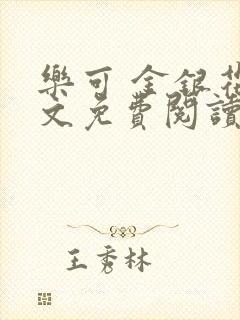 樂可 金銀花
文免費閱讀
王秀林